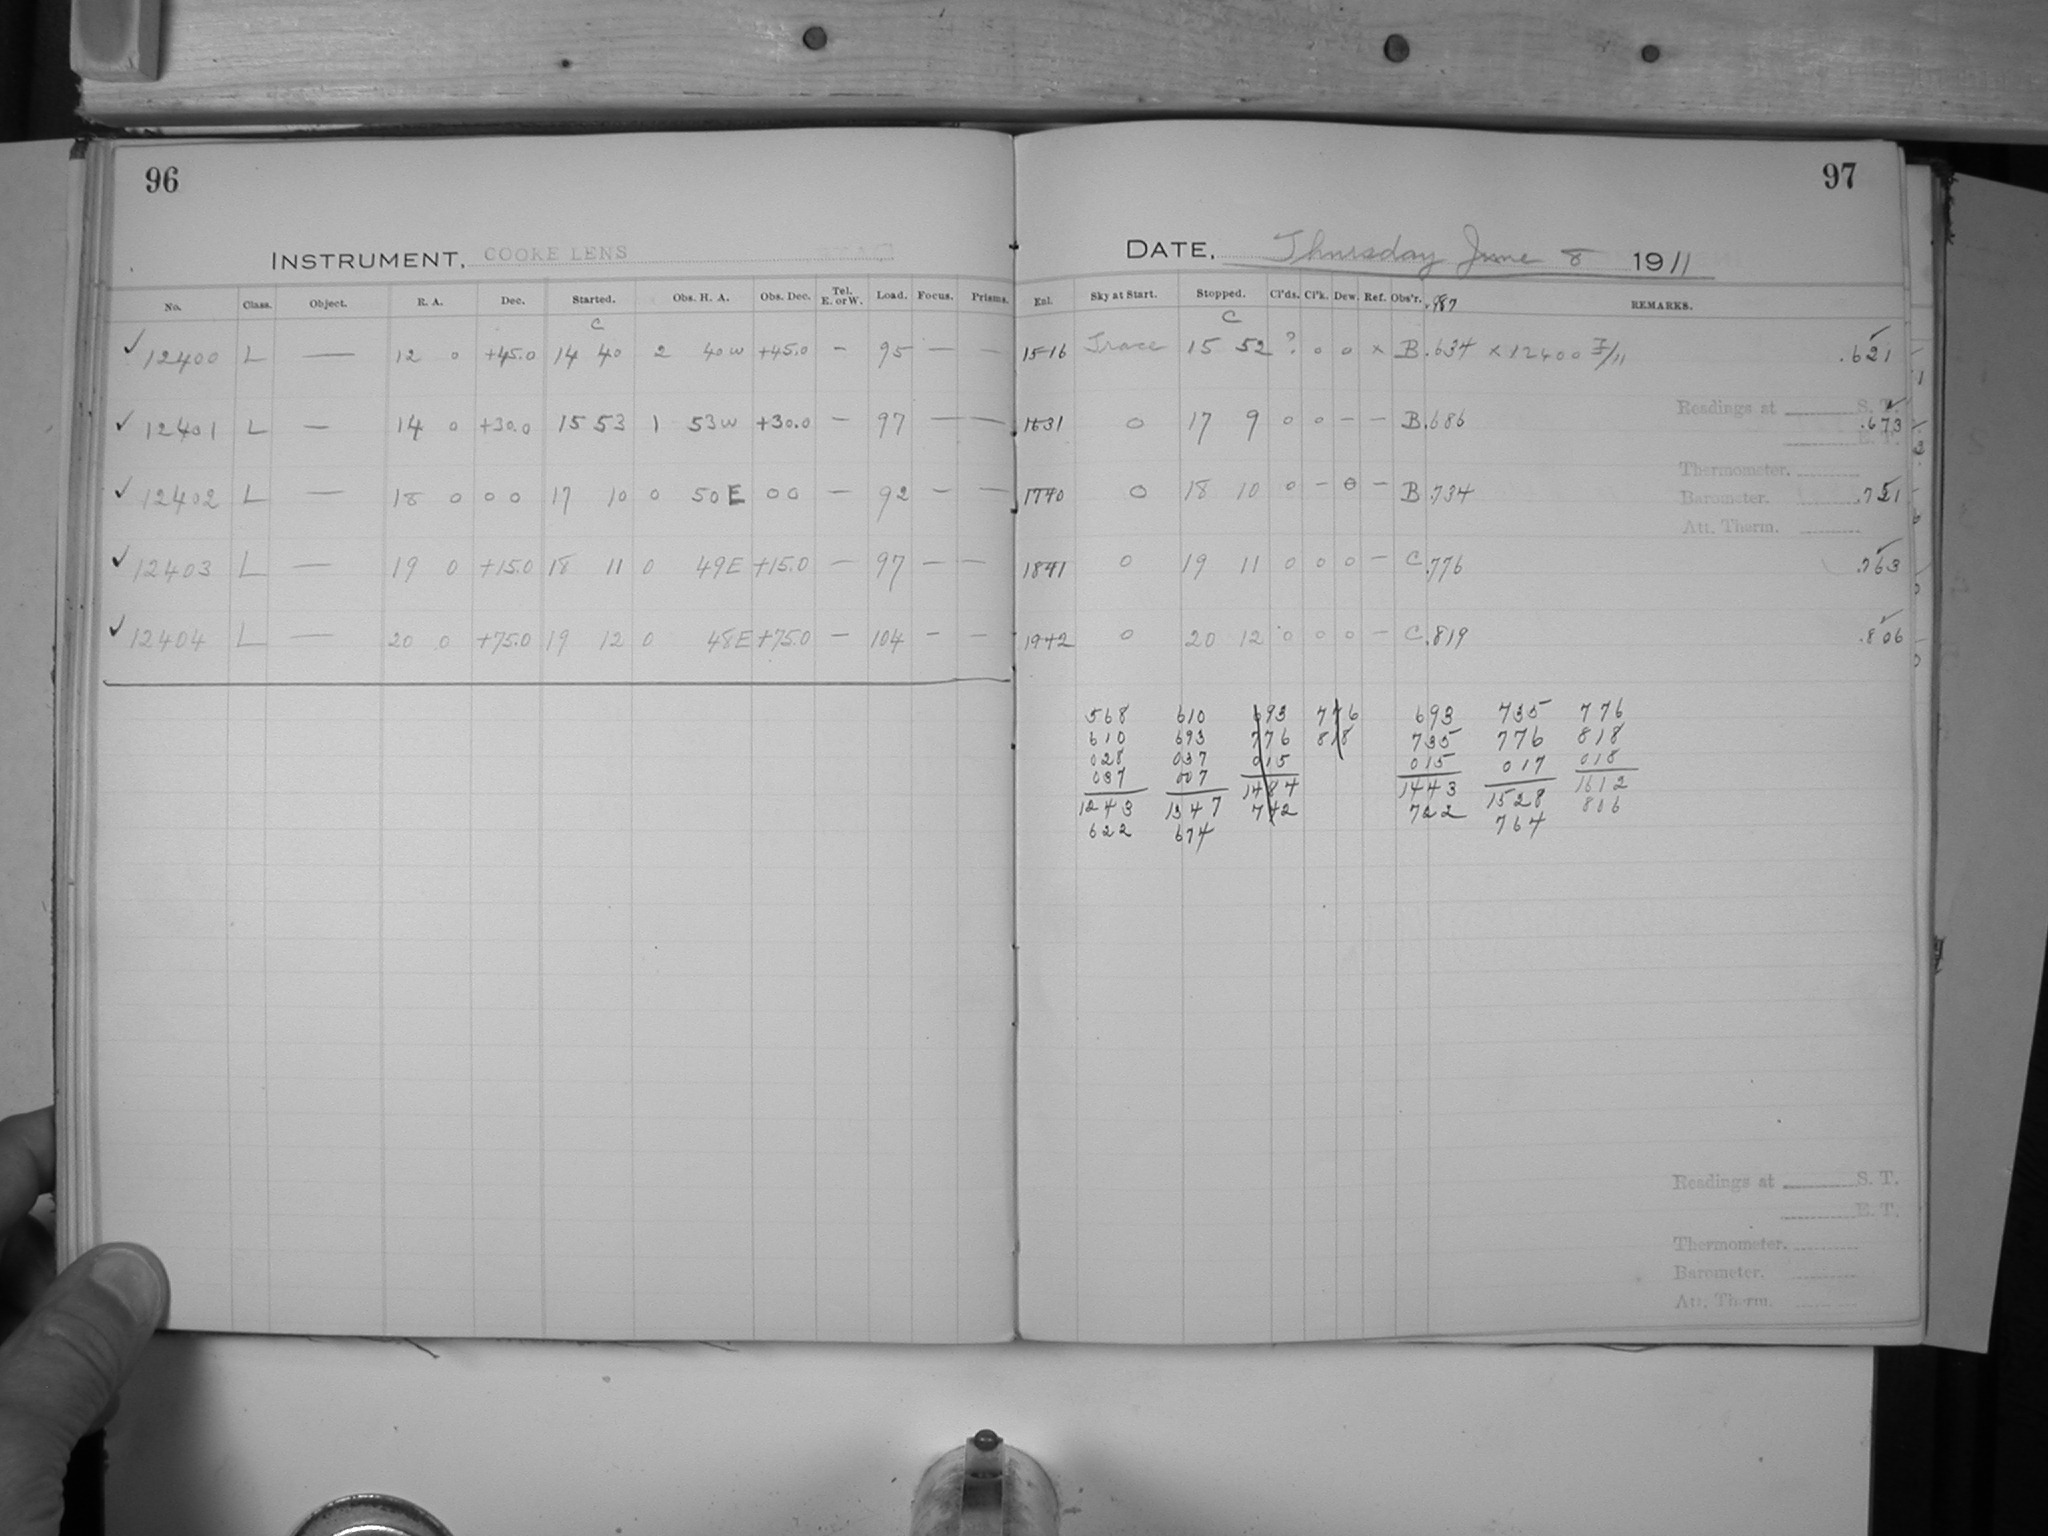 96
INSTRUMENT. COOKE LENS
No. Class. Object. R. A. Dec. Started. Obs. H. A. Obs. Dec. Tel. E. or W. Load. Focus. Prisms.
C
✓ 12400 L — 12 0 +45.0 14 40 2 40w +45.0 – 95 — —
✓ 12401 L — 14 0 +30.0 15 53 1 53w +30.0 – 97 — —
✓ 12402 L — 18 0 0 0 17 10 0 50E 0 0 – 92 – —
✓ 12403 L — 19 0 +15.0 18 11 0 49E +15.0 – 97 – —
✓ 12404 L — 20 0 +75.0 19 12 0 48E +75.0 – 104 – –
97
DATE. Thursday June 8 1911
Exl. Sky at Start. Stopped. Cl'ds. Cl'k. Dew. Ref. Obs'r. .987 REMARKS.
C
15-16 Trace 15 52 ? 0 0 × B .634 × 12400 I/11 .621
1631 0 17 9 0 0 – – B .686 .673
1740 0 18 10 0 – 0 – B .734 .721
1841 0 19 11 0 0 0 – C .776 .763
1942 0 20 12 0 0 0 – C .819 .806
Readings at S. T.
E. T.
Thermometer.
Barometer.
Att. Therm.
568 610 693 776 693 735 776
610 693 776 818 735 776 818
028 037 015 015 017 018
037 007 1484 1443 1528 1612
1243 1347 742 722 764 806
622 674
Readings at S. T.
E. T.
Thermometer.
Barometer.
Att. Therm.